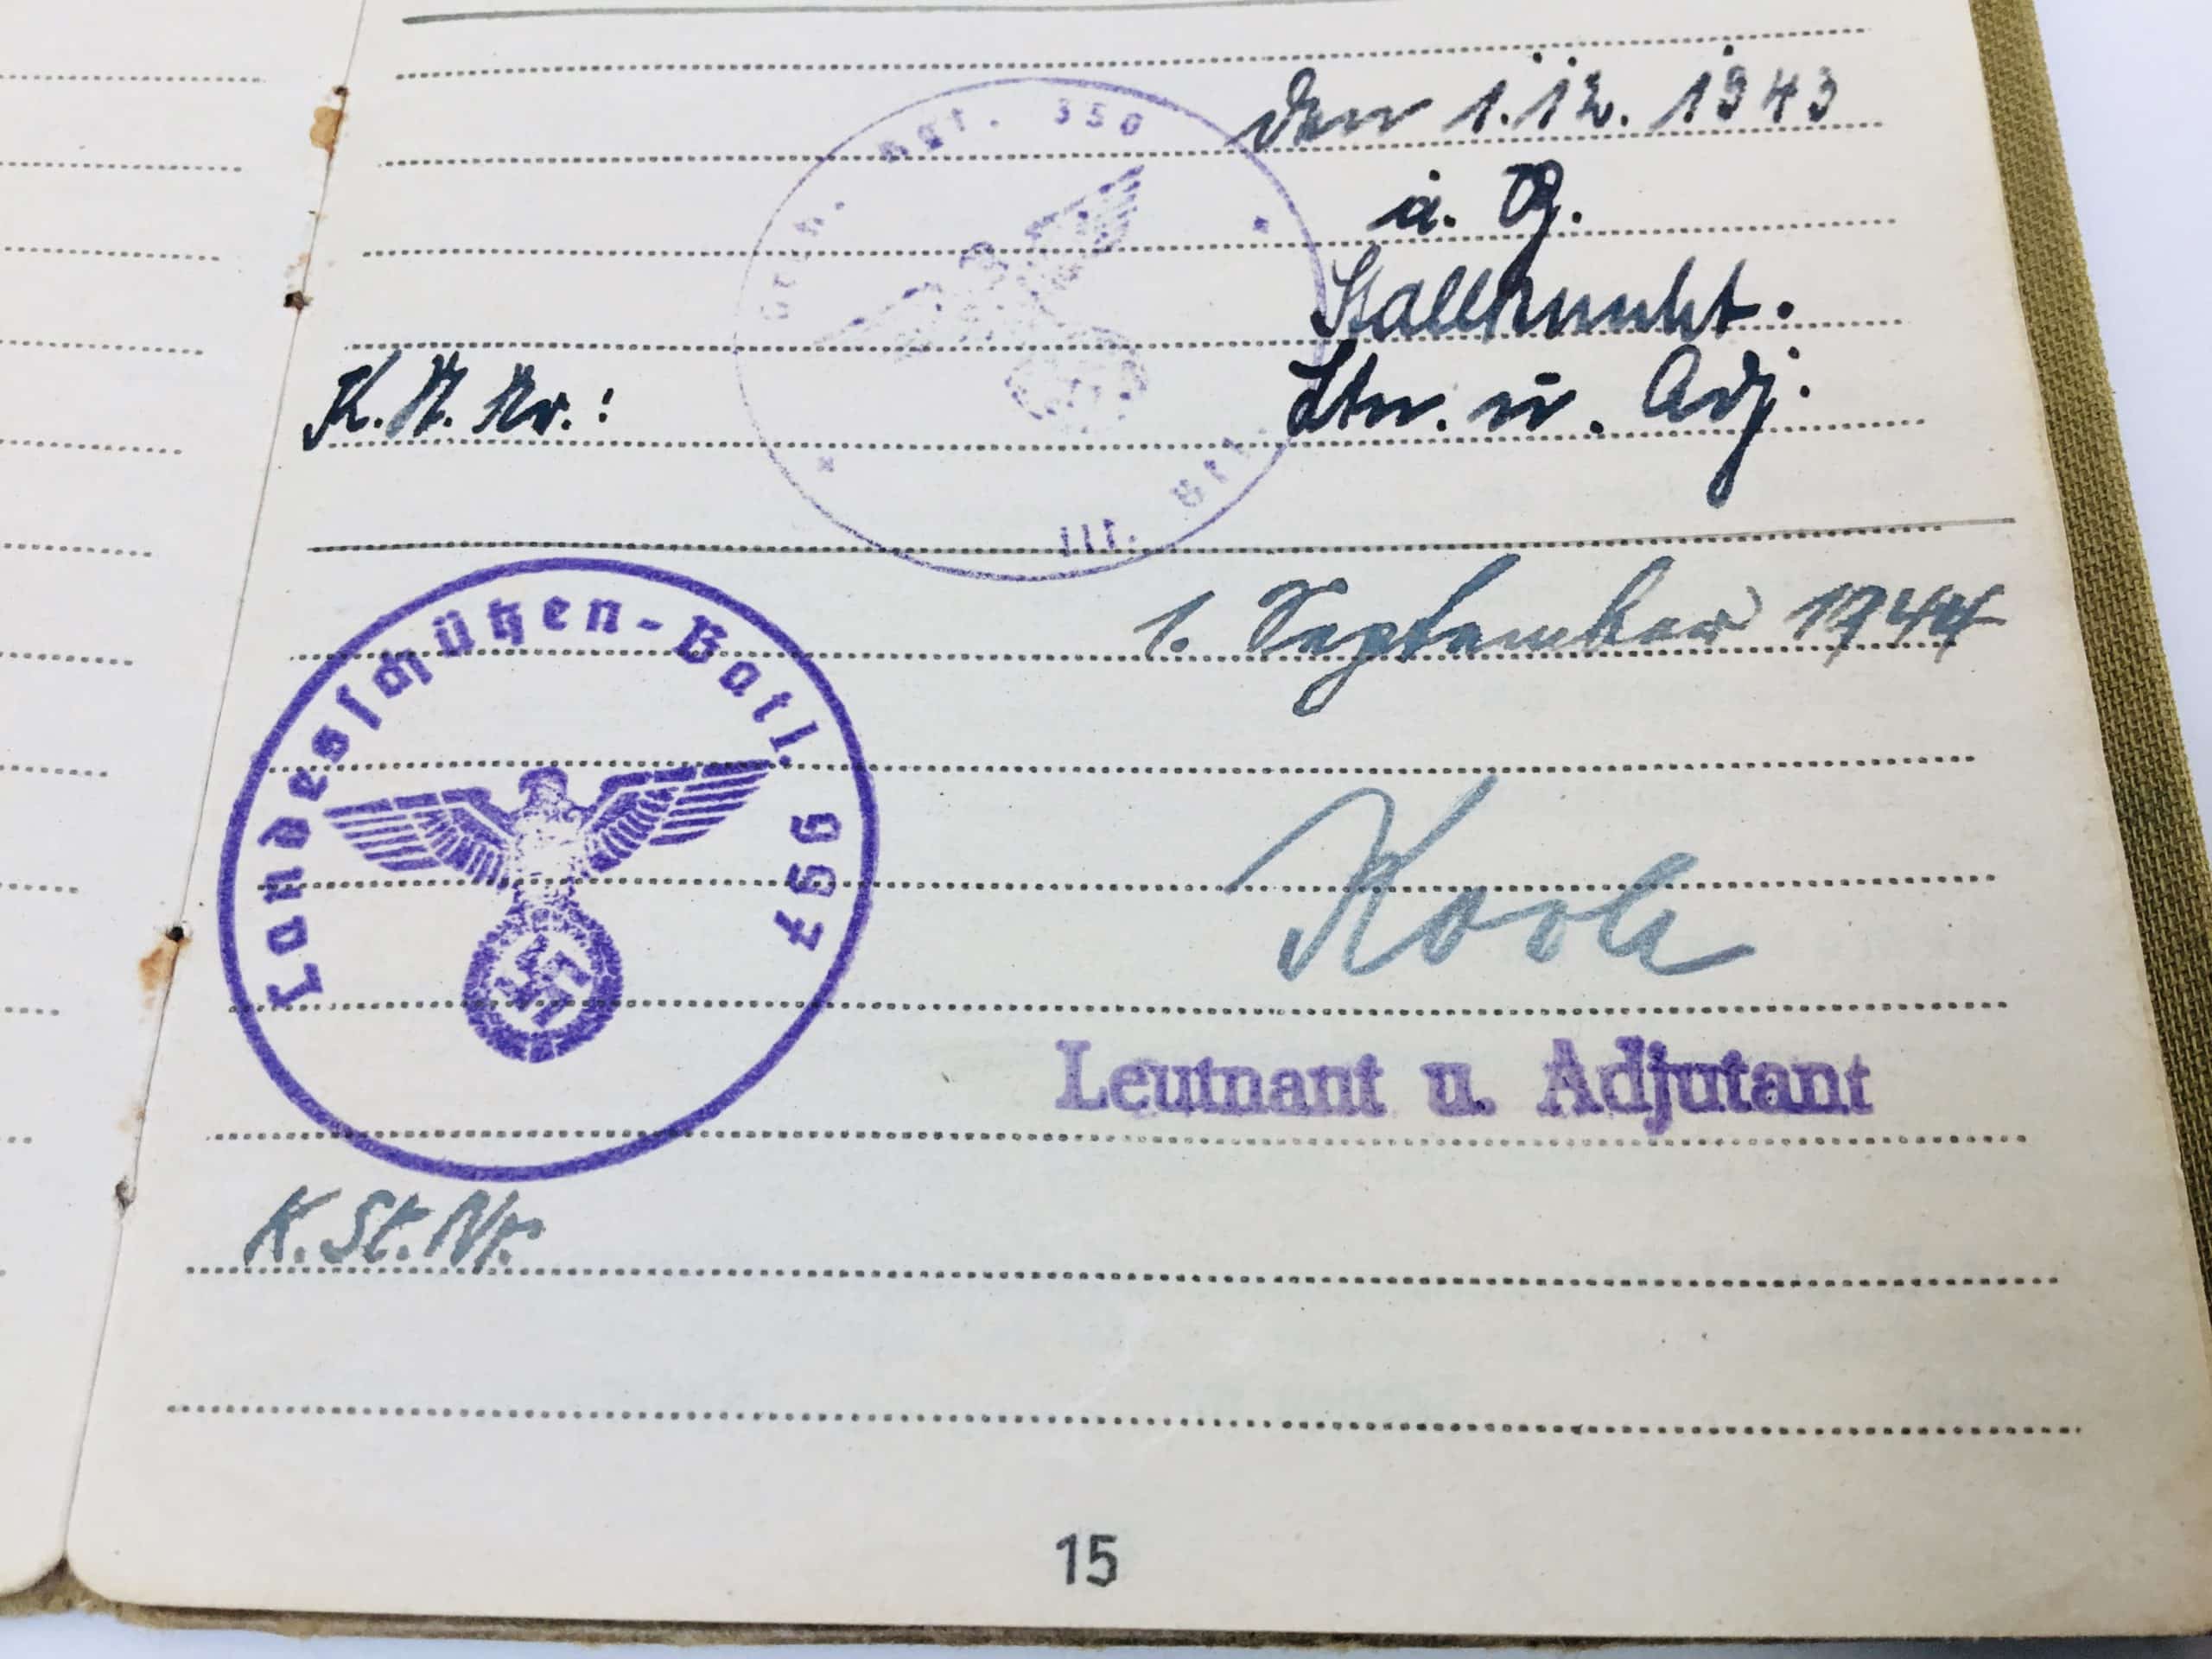 den 1.12.1943
Gren. Rgt. 350
III. Btl.
K. St. Nr.:
Ltn. u. Adj.
1. September 1944
Landesschützen-Batl. 997
Leutnant u. Adjutant
K. St. Nr.
15